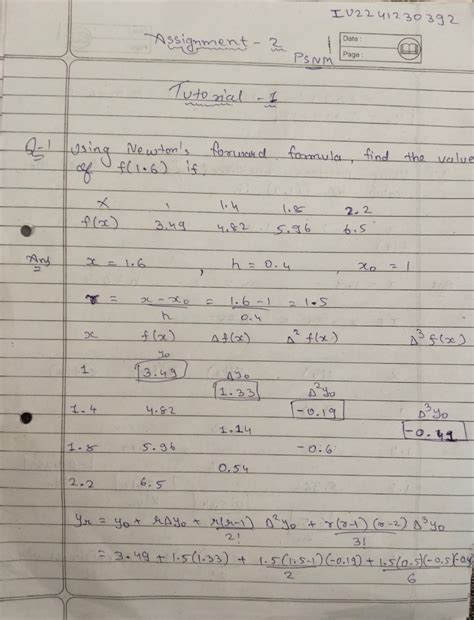 IU2241230392
Assignment - 2
PSNM
Date :
Page :
Tutorial - 1
Q-1 Using Newton's forward formula, find the value
of f(1.6) if.
x 1 1.4 1.8 2.2
f(x) 3.49 4.82 5.96 6.5
Ans x = 1.6 , h = 0.4 , x₀ = 1
r = x - x₀ / h = 1.6 - 1 / 0.4 = 1.5
x f(x) Δf(x) Δ² f(x) Δ³ f(x)
y₀
1 3.49 Δy₀
1.33 Δ²y₀
1.4 4.82 -0.19 Δ³y₀
1.14 -0.41
1.8 5.96 -0.6
0.54
2.2 6.5
yr = y₀ + rΔy₀ + r(r-1)/2! Δ²y₀ + r(r-1)(r-2)/3! Δ³y₀
= 3.49 + 1.5(1.33) + 1.5(1.5-1)(-0.19)/2 + 1.5(0.5)(-0.5)(-0.4/6